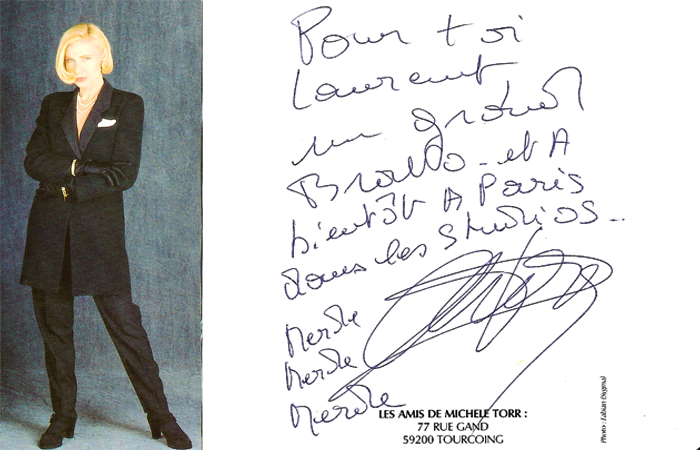 Pour toi
Laurent
un grand
Bravo - et A
bientôt A Paris
dans les studios...
Merde
Merde
Merde
LES AMIS DE MICHELE TORR :
77 RUE GAND
59200 TOURCOING
Photo : Fabian Duymal